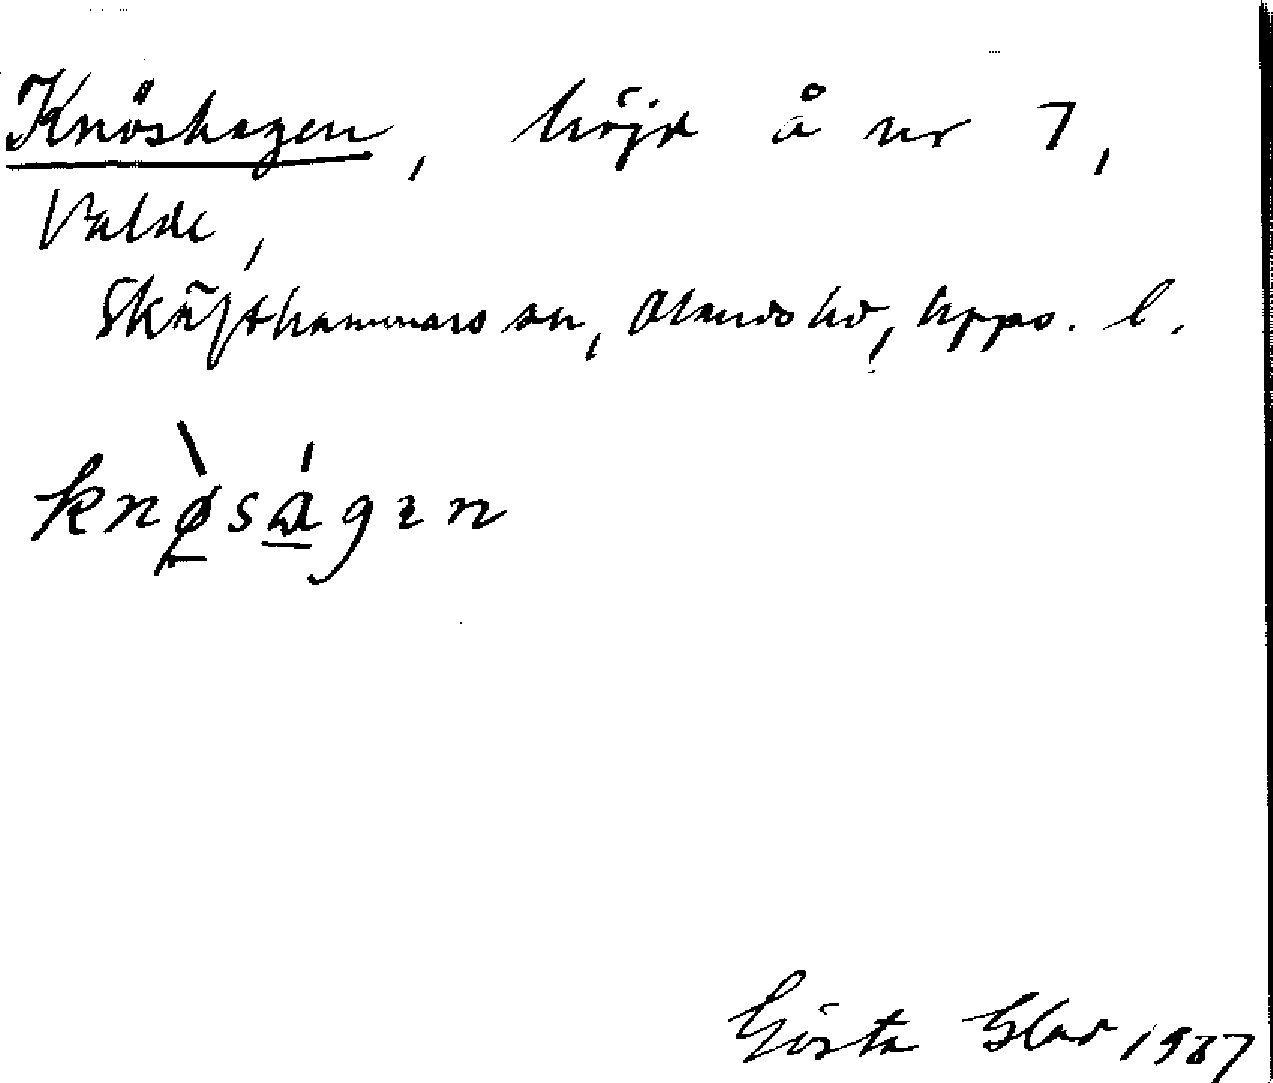 Knöshagen, höjd å nr 7,
Valde,
Skäfthammars sn, Olands hd, Upps. l.
knø̀ságɪn
Gösta Glad 1987